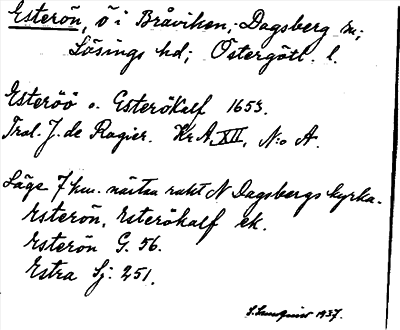 Esterön, ö i Bråviken, Dagsberg sn;
Lösings hd; Östergötl. l.
Esteröö o. Esterökalf 1653.
Tral. J. de Rogier. Kr A XII, N:o A.
Läge 7 km. nästan rakt N Dagsbergs kyrka.
Esterön, Esterökalf ek.
Esterön G. 56.
Estra Sj: 251.
1937.